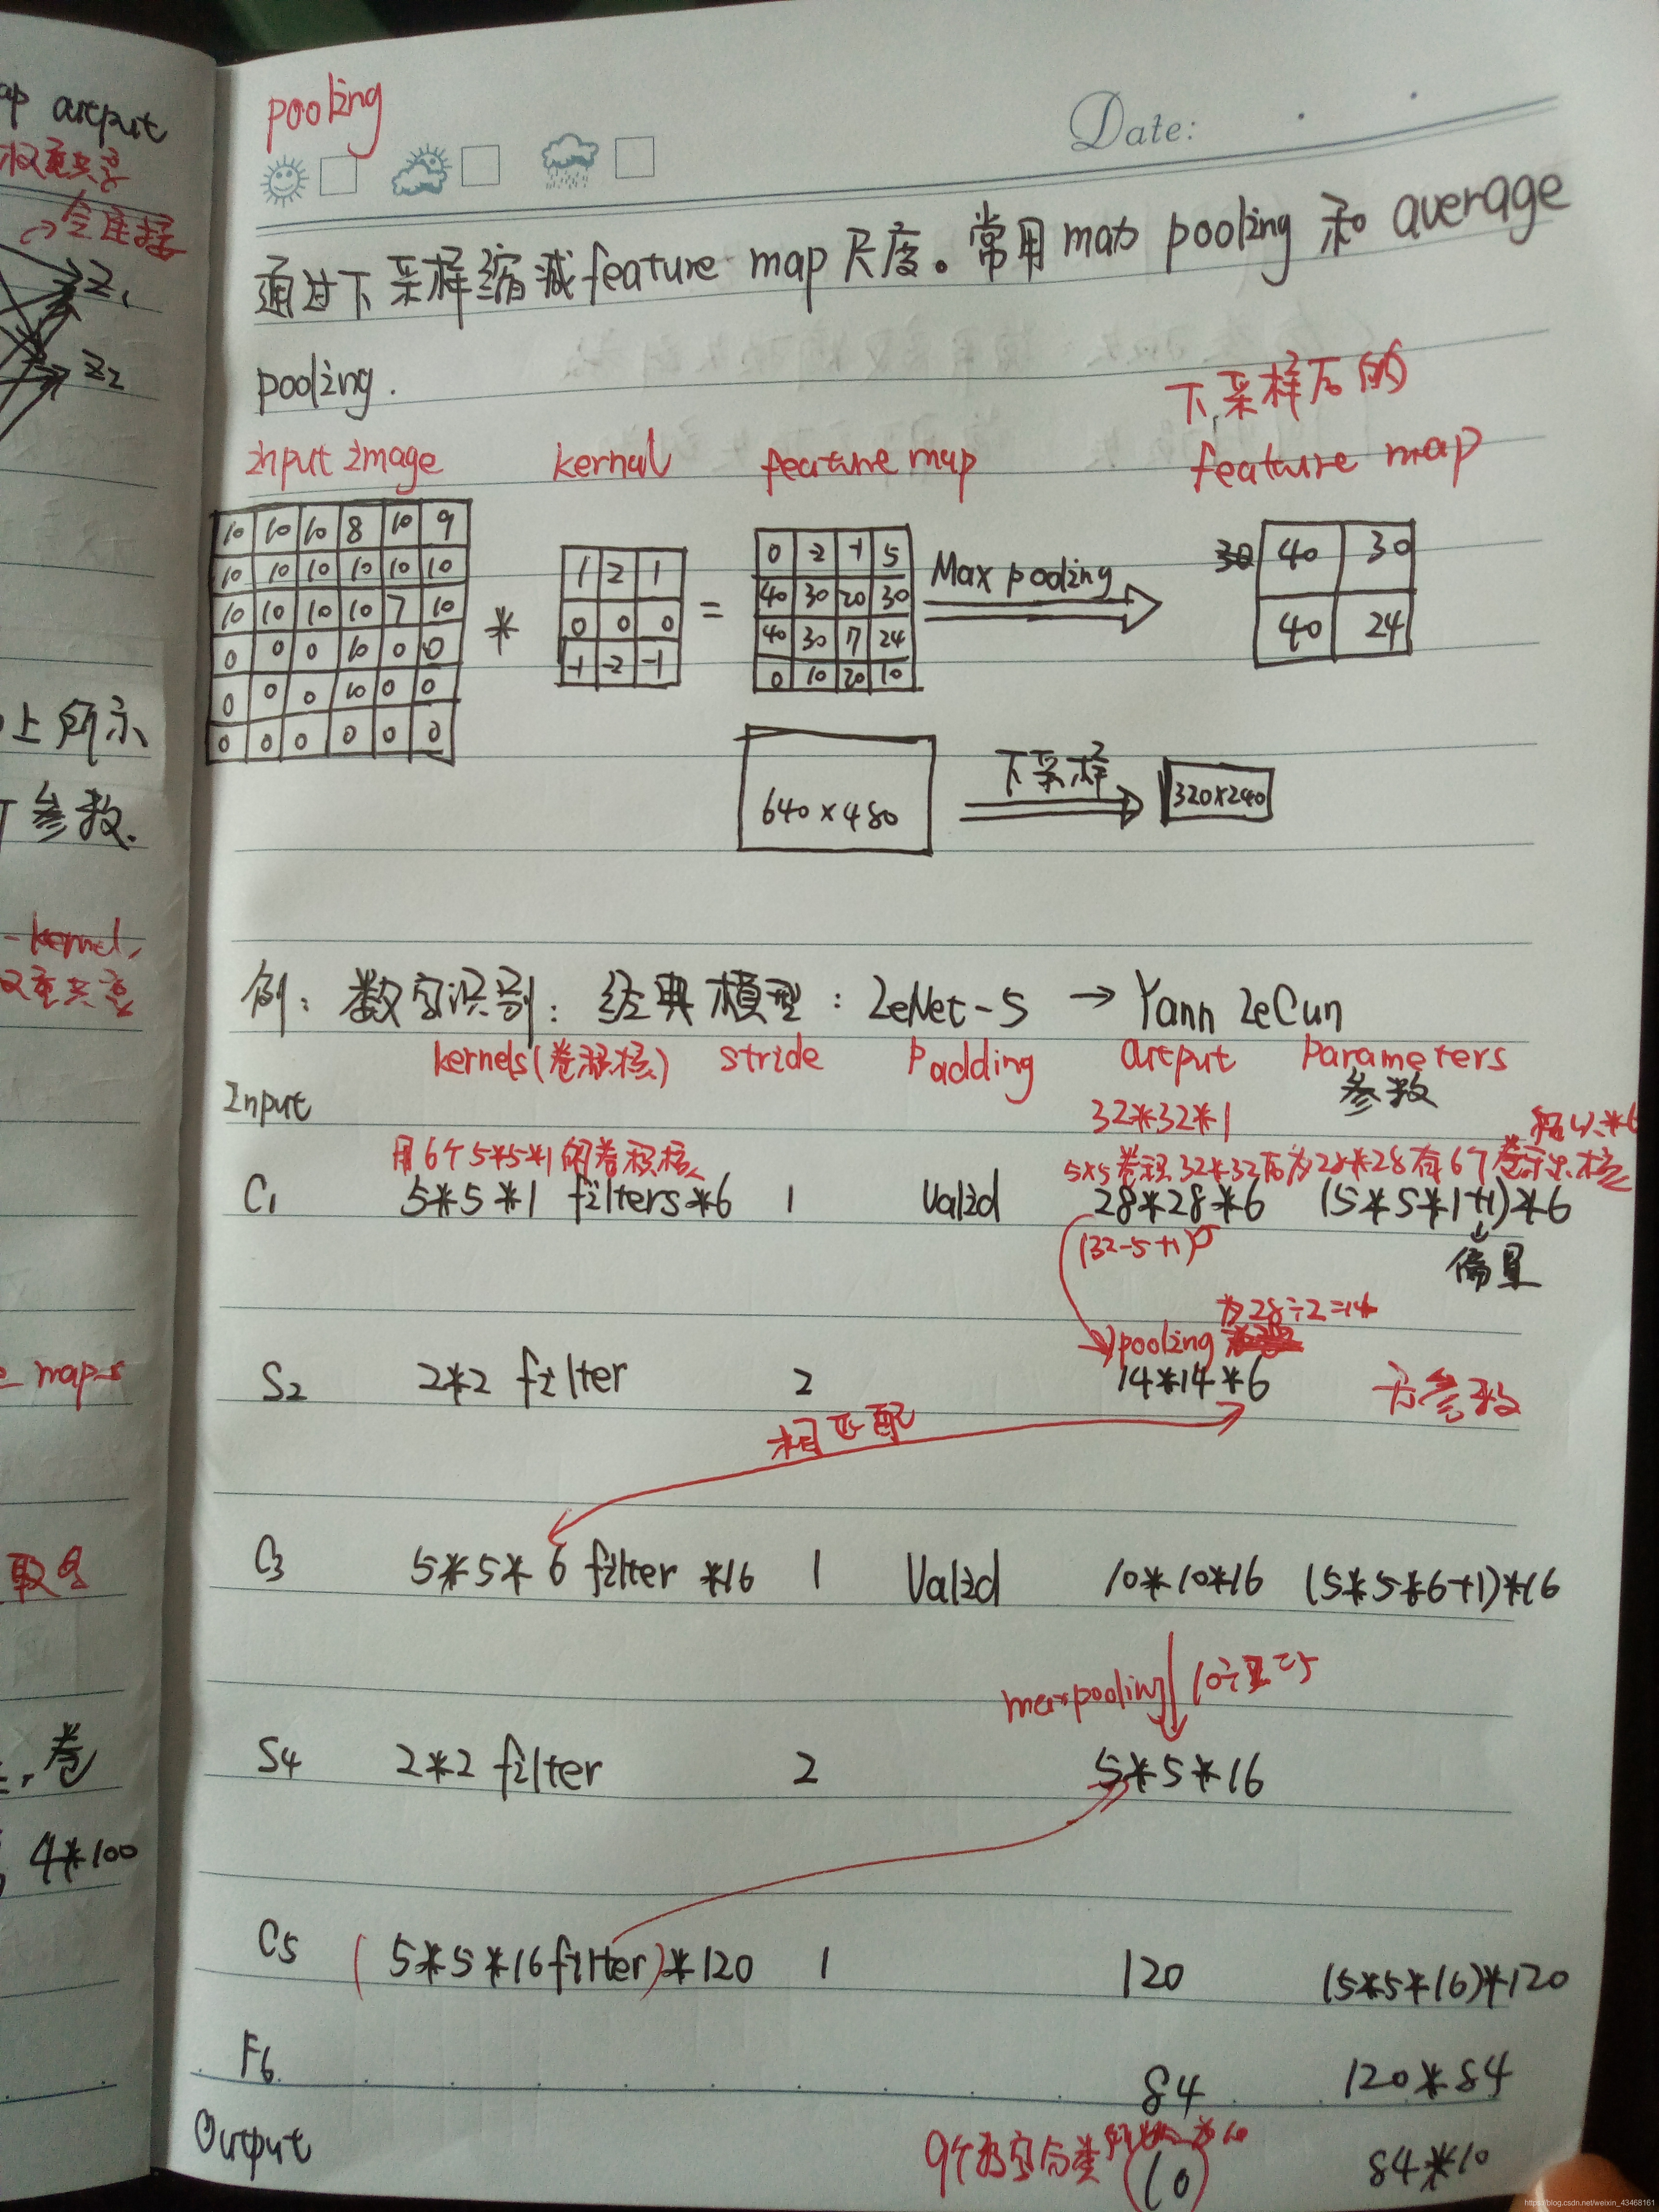 ap output
权重共享
全连接
Z1
Z2
上所示
参数.
kernel,
权重共享
maps
取名
卷
4*100
pooling
Date:
通过下采样缩减feature map尺度。常用max pooling 和 average
pooling.
下采样后的
input image kernal feature map feature map
10 10 10 8 10 9
10 10 10 10 10 10
10 10 10 10 7 10
0 0 0 10 0 0
0 0 0 10 0 0
0 0 0 0 0 0
*
1 2 1
0 0 0
-1 -2 -1
=
0 -2 -1 5
40 30 20 30
40 30 17 24
0 10 20 10
Max pooling
30
40 30
40 24
640×480 下采样 320×240
例：数字识别：经典模型：LeNet-5 → Yann LeCun
kernels(卷积核) stride Padding output Parameters
参数
Input 32*32*1
用6个5*5*1的卷积核 5x5卷积32*32后为28*28有6个卷积核 所以*6
C1 5*5*1 filters*6 1 Valid 28*28*6 (5*5*1+1)*6
(32-5+1) 偏置
为28÷2=14
pooling
S2 2*2 filter 2 14*14*6 无参数
相匹配
C3 5*5*6 filter *16 1 Valid 10*10*16 (5*5*6+1)*16
maxpooling 10÷2=5
S4 2*2 filter 2 5*5*16
C5 (5*5*16filter)*120 1 120 (5*5*16)*120
F6 84 120*84
Output 9个数字分类 (10) 84*10
https://blog.csdn.net/weixin_43468161